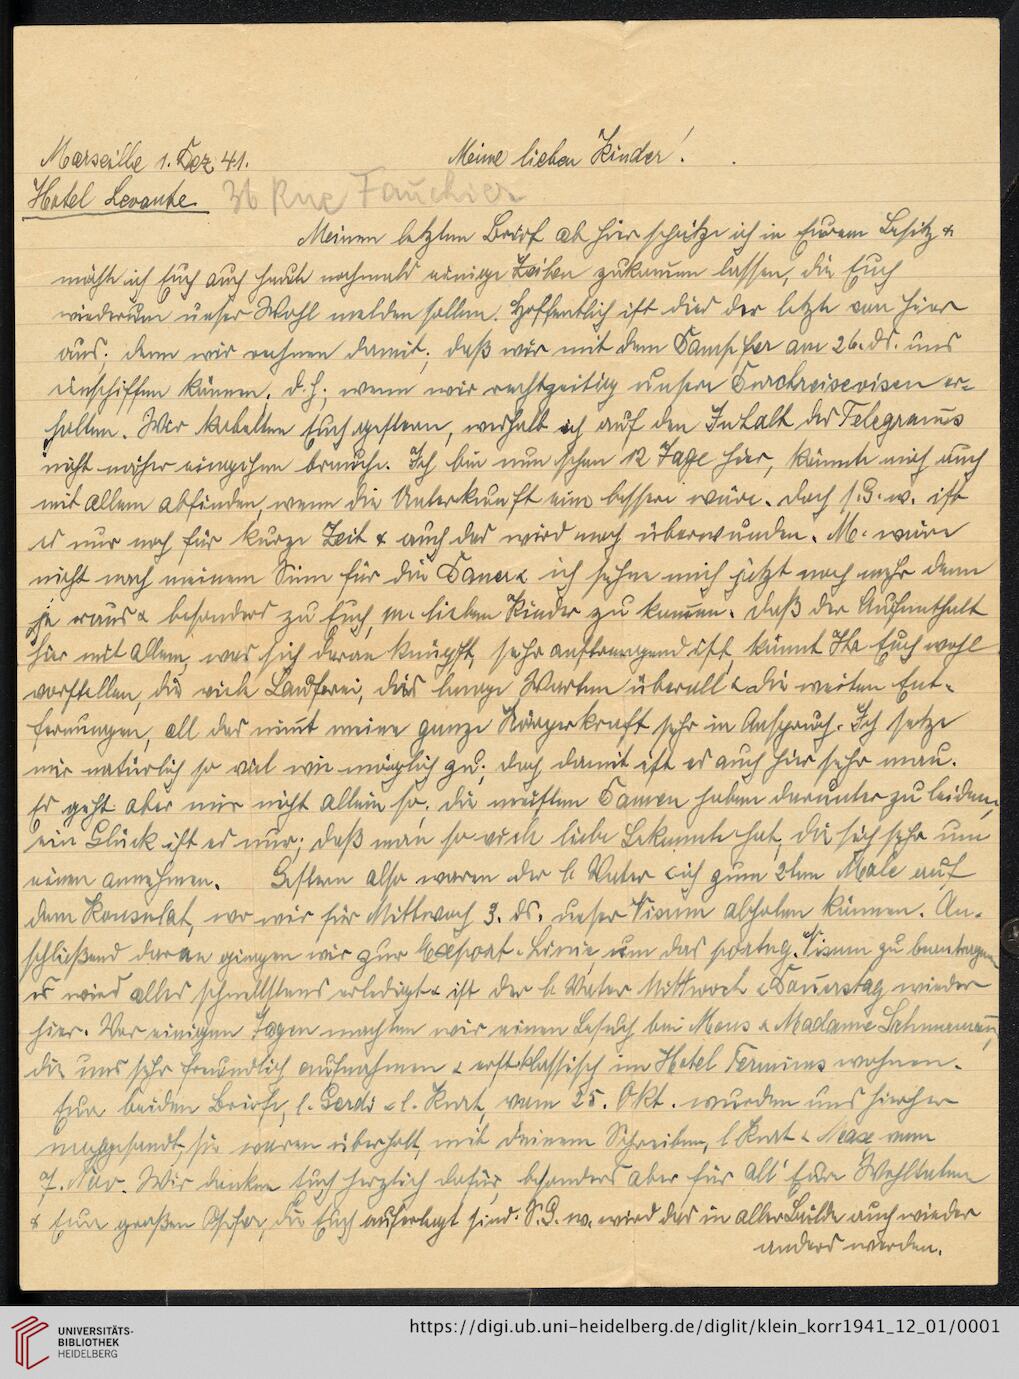 Marseille 1. Dez. 41. Meine lieben Kinder!
Hotel Levante. 36 Rue Fauchier
Meinen letzten Brief ab hier schätze ich in Eurem Besitz &
möchte ich Euch auch heute nochmals einige Zeilen zukommen lassen, die Euch
wiederum unser Wohl melden sollen. Hoffentlich ist dies der letzte von hier
aus. denn wir rechnen damit, daß wir mit dem Dampfer am 26. ds. uns
einschiffen können. d. h. wenn wir rechtzeitig unsere Durchreisevisen er-
halten. Wir kabelten Euch gestern, weshalb ich auf den Inhalt des Telegramms
nicht näher eingehen brauche. Ich bin nun schon 12 Tage hier, könnte mich auch
mit allem abfinden, wenn die Unterkunft eine bessere wäre. doch s. G. w. ist
es nur noch für kurze Zeit & auch das wird noch überwunden. M. wäre
nicht nach meinem Sinn für die Dauer & ich sehne mich jetzt noch mehr denn
je raus & besonders zu Euch, m. lieben Kinder zu kommen. daß der Aufenthalt
hier mit allem, was sich daran knüpft, sehr anstrengend ist, könnt Ihr Euch wohl
vorstellen, die viele Lauferei, das lange Warten überall & die weiten Ent-
fernungen, all das nimt meine ganze Körperkraft sehr in Anspruch. Ich setze
mir natürlich so viel wie möglich zu; doch damit ist es auch hier sehr mau.
Es geht aber mir nicht allein so, die meisten Damen haben darunter zu leiden,
ein Glück ist es nur; daß man so viele liebe Bekannte hat, die sich sehr um
einen annehmen. Gestern also waren der l. Vater & ich zum 2ten Male auf
dem Konsulat, wo wir für Mittwoch 3. ds. unser Visum abholen können. An-
schließend daran gingen wir zur Export-Linie, um das portug. Visum zu beantragen
es wird alles schnellstens erledigt & ist der l. Vater Mittwoch & Donnerstag wieder
hier. Vor einigen Tagen machten wir einen Besuch bei Mons & Madame
die uns sehr freundlich aufnahmen & erstklassisch im Hotel Terminus wohnen.
Eure beiden Briefe, l. Gerdi & l. Kurt, vom 25. Okt. wurden uns hierher
nachgesandt, sie waren überholt, mit deinem Schreiben, l Kurt & Max vom
7. Nov. Wir danken Euch herzlich dafür, besonders aber für all' Eure Wohltaten
& Eure großen Opfer, die Euch auferlegt sind. S. G. w. wird das in aller Bälde auch wieder
anders werden.
UNIVERSITÄTS-
BIBLIOTHEK
HEIDELBERG
https://digi.ub.uni-heidelberg.de/diglit/klein_korr1941_12_01/0001